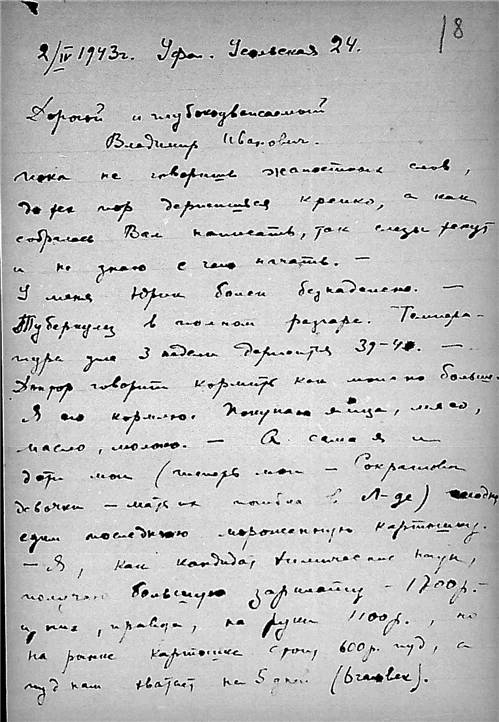 18
2/IV 1943г. Уфа. Усольская 24.
Дорогой и глубокоуважаемый
Владимир Иванович.
пока не говоришь жалостных слов,
до тех пор держишься крепко, а как
собралась Вам написать, так слезы текут
и не знаю с чего начать. —
У меня Юрик болен безнадежно. —
Туберкулез в полном разгаре. Темпера-
тура уже 3 недели держится 39-40. —
Доктор говорит кормить как можно больше.
Я его кормлю. Покупаю яйца, мясо,
масло, молоко. — А сама я и
дети мои (теперь мои —
девочки — мать их погибла в Л-де) сегодня
едим последнюю мороженную картошку.
— Я, как кандидат химических наук,
получаю большую зарплату — 1700р. —
из них, правда, на руки 1100р., но
на рынке картошка стоит 600р. пуд, а
пуд нам хватает на 5 дней (6 человек).